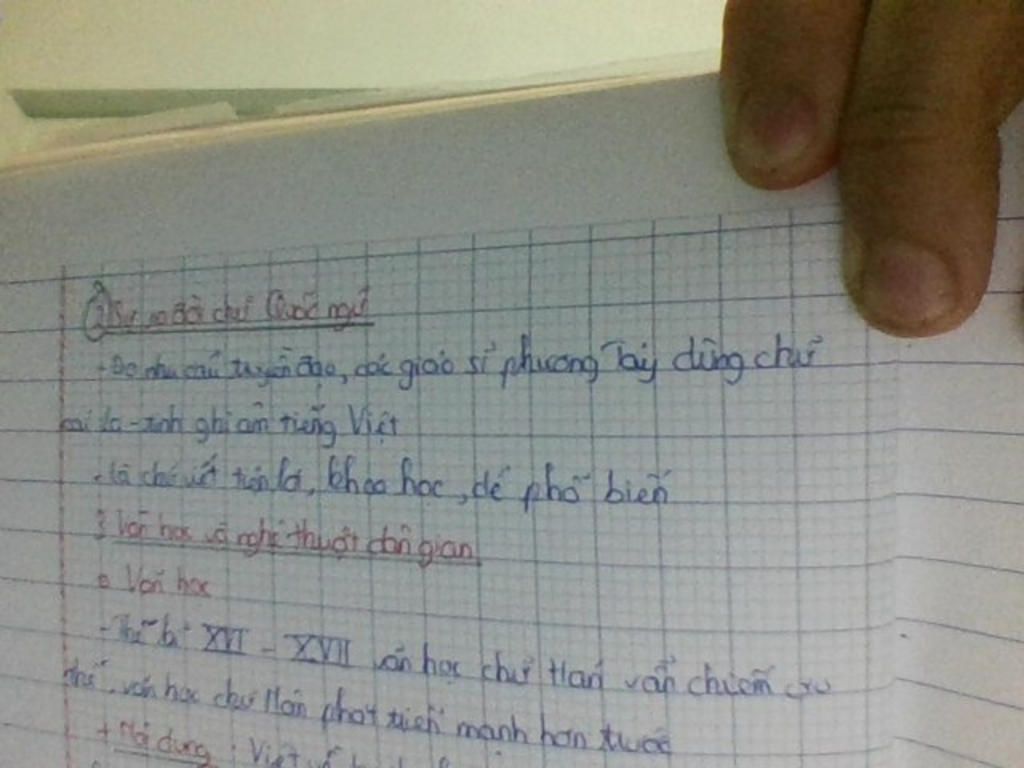 ② Sự ra đời chữ Quốc ngữ
- Do nhu cầu truyền đạo, các giáo sĩ phương Tây dùng chữ
cái la-tinh ghi âm tiếng Việt
- là chữ viết tiện lợi, khoa học, dễ phổ biến
3 Văn học và nghệ thuật dân gian
a Văn học
- Thế kỉ XVI - XVII văn học chữ Hán vẫn chiếm ưu
thế, văn học chữ Nôm phát triển mạnh hơn trước
+ Nội dung : Viết về